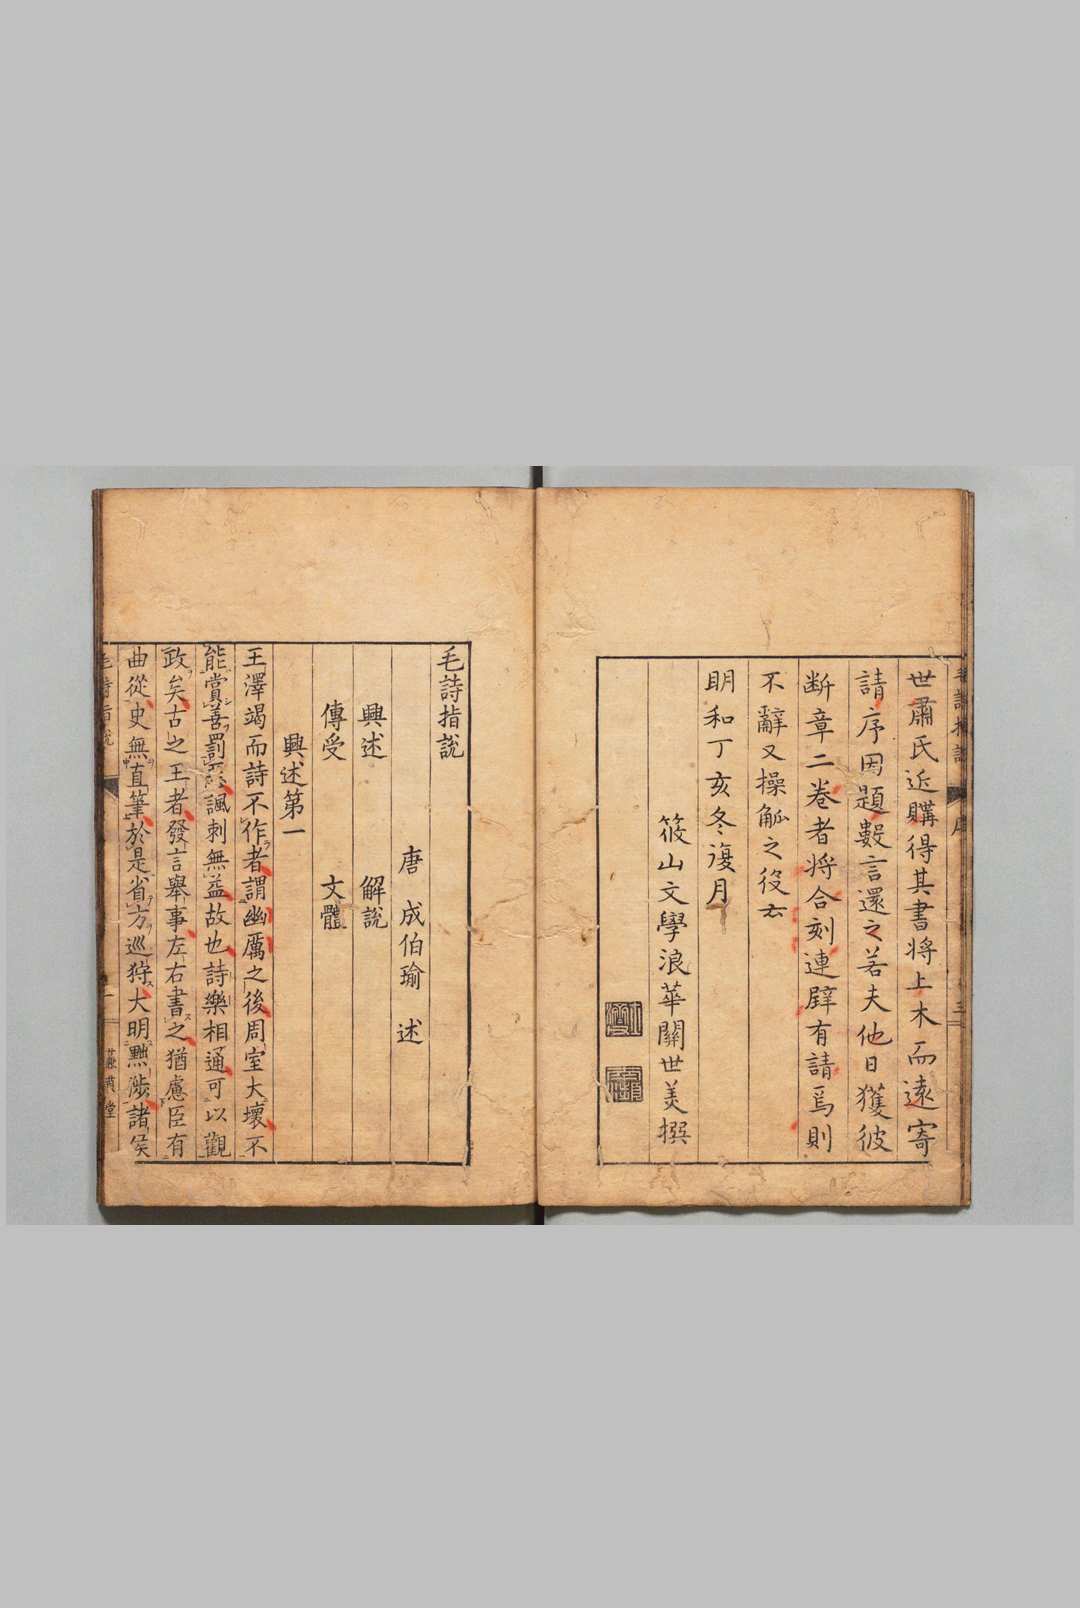 世肅氏近購得其書將上木而遠寄
請序因題數言還之若夫他日獲彼
斷章二卷者將合刻連璧有請焉則
不辭又操觚之役云
明和丁亥冬復月
筱山文學浪華關世美撰
毛詩指說
唐 成伯瑜 述
興述 解說
傳受 文體
興述第一
王澤竭而詩不作者謂幽厲之後周室大壞不
能賞善罰惡諷刺無益故也詩樂相通可以觀
政矣古之王者發言舉事左右書之猶慮臣有
曲從史無直筆於是省方巡狩大明黜陟諸侯